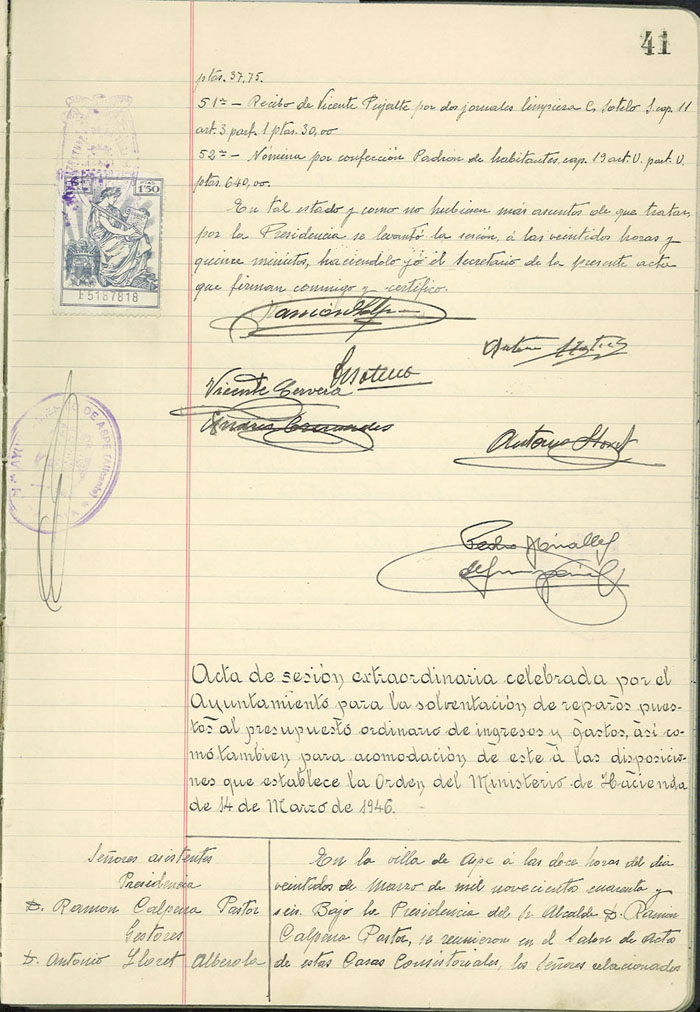 41
ptas. 37,75.
51ª — Recibo de Vicente Pujalte por dos jornales limpieza C. Sotelo S. cap. 11
art. 3 part. 1 ptas. 30,00
52ª — Nómina por confección Padron de habitantes, cap. 19 art. U. part. U.
ptas. 640,00.
En tal estado y como no hubiesen más asuntos de que tratar,
por la Presidencia se levantó la sesión, á las veintidos horas y
quince minutos, haciendolo yo el Secretario de la presente acta
que firman conmigo y certifico.
1'50
F5187818
Vicente Cervera
Antonio Lloret
Pedro
Acta de sesión extraordinaria celebrada por el
Ayuntamiento para la solventación de reparos pues-
tos al presupuesto ordinario de ingresos y gastos, así co-
mo tambien para acomodación de este á las disposicio-
nes que establece la Orden del Ministerio de Hacienda
de 14 de Marzo de 1946.
Señores asistentes
Presidencia
D. Ramon Calpena Pastor
Gestores
D. Antonio Lloret Alberola
En la villa de Aspe á las doce horas del dia
veintidos de Marzo de mil novecientos cuarenta y
seis. Bajo la Presidencia del Sr. Alcalde D. Ramon
Calpena Pastor, se reunieron en el Salon de Actos
de estas Casas Consistoriales, los Señores relacionados